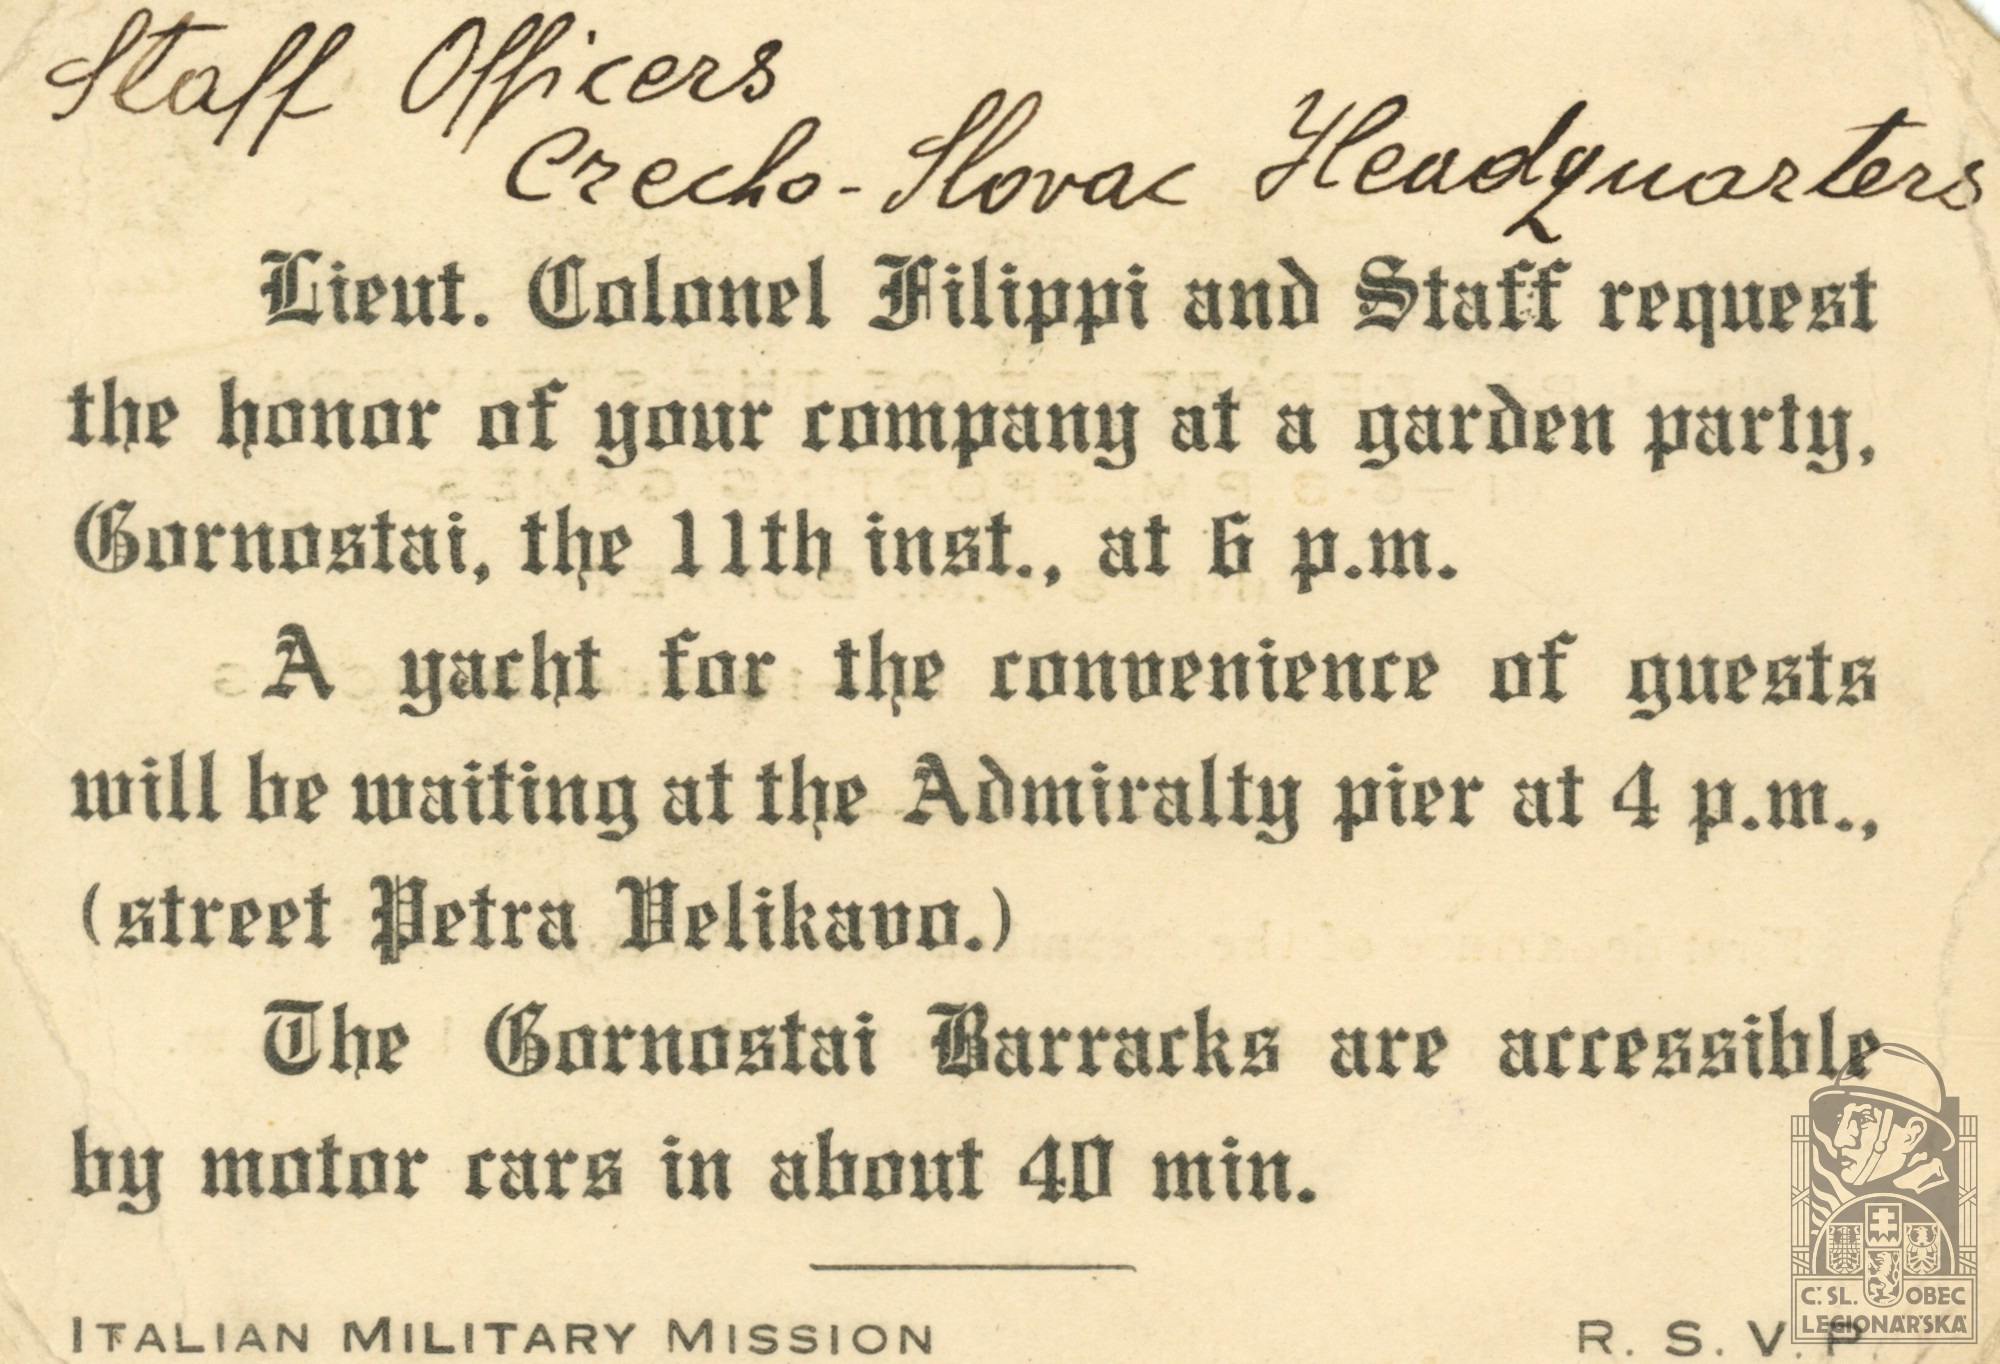 Staff Officers
Czecho-Slovac Headquarters
Lieut. Colonel Filippi and Staff request
the honor of your company at a garden party,
Gornostai, the 11th inst., at 6 p.m.
A yacht for the convenience of guests
will be waiting at the Admiralty pier at 4 p.m.,
(street Petra Velikavo.)
The Gornostai Barracks are accessible
by motor cars in about 40 min.
ITALIAN MILITARY MISSION
R. S. V. P.
Č. SL. OBEC
LEGIONÁŘSKÁ